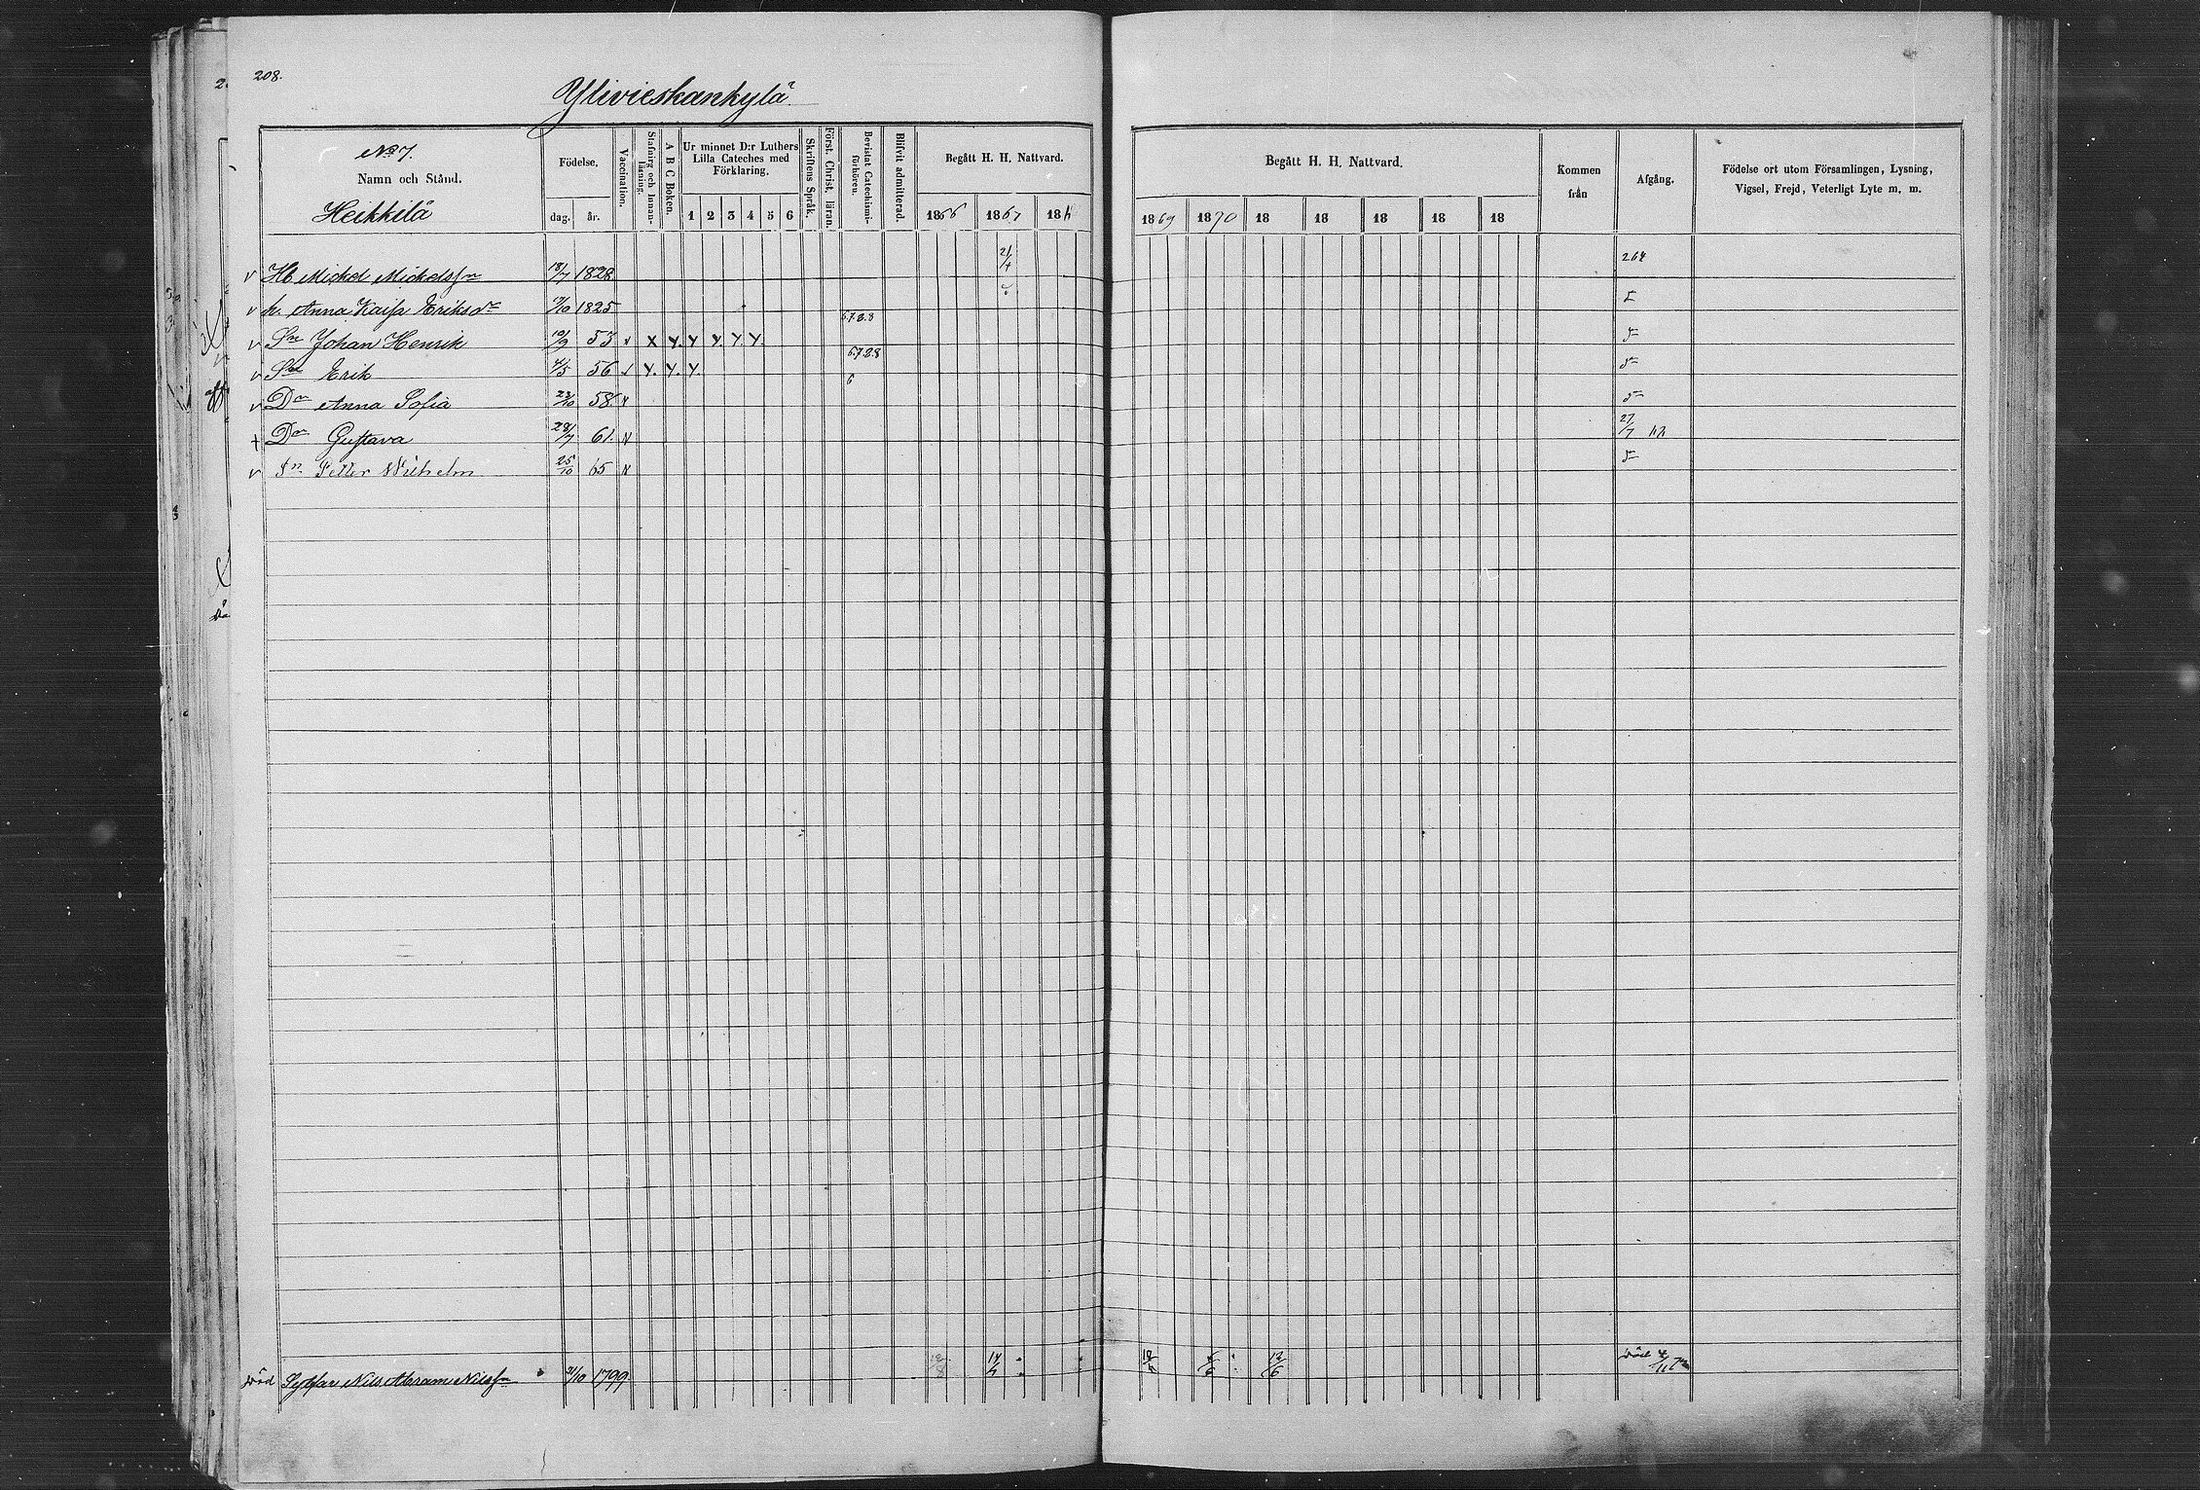 208.
Ylivieskankylä
No 7.
Namn och Stånd.
Heikkilä
Födelse.
dag. år.
Vaccination.
Stafning och Innanläsning.
A B C Boken.
Ur minnet D:r Luthers Lilla Cateches med Förklaring.
1 2 3 4 5 6
Skriftens Språk.
Först. Christ. läran.
Bevistat Catechismiförhören.
Blifvit admitterad.
Begått H. H. Nattvard.
1866 1867 18
Begått H. H. Nattvard.
1869 1870 18 18 18 18 18
Kommen från
Afgång.
Födelse ort utom Församlingen, Lysning, Vigsel, Frejd, Veterligt Lyte m. m.
v Hb Mickel Mickelsson 18/7 1828 21/4 264
v h. Anna Kaisa Eriksdr 1825
v Sn Johan Henrik 10/9 53 v x y. y y. y. y. 6.7.2.8
v Sn Erik 4/5 56 v y. y. y. 6.7.2.8
v Dr Anna Sofia 23/10 58 v 6
+ Dr Gustava 28/7 61. v 27/7
v Sn Petter Wilhelm 25/10 65 v
död Nils Abram Nilsson 21/10 1799 14/4 12/6 död